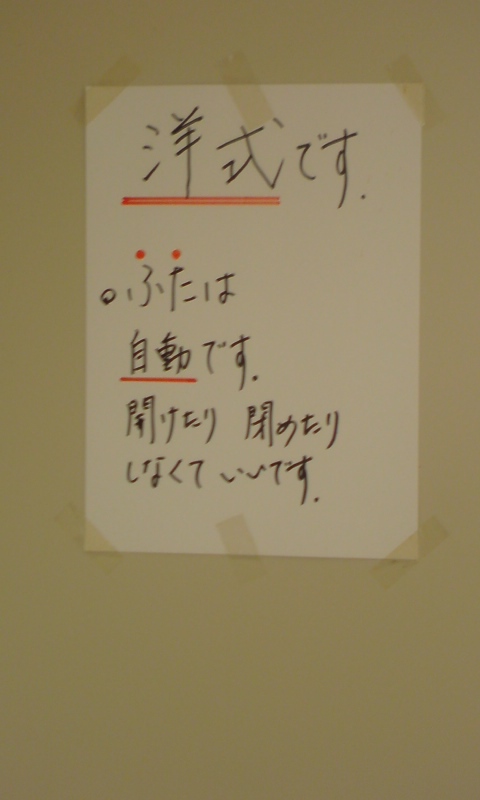 洋式です.
○ふたは
自動です.
開けたり 閉めたり
しなくていいです.